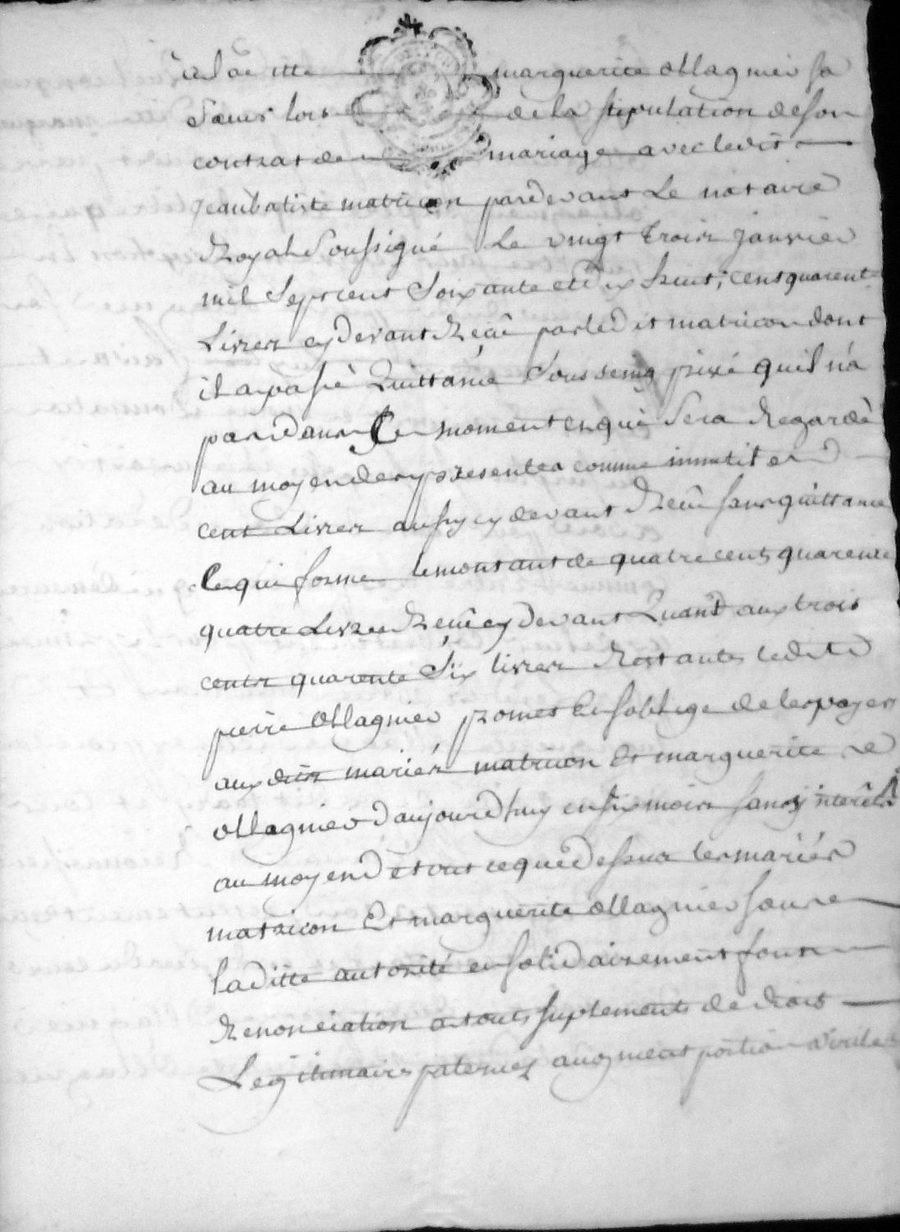 a laditte marguerite ollagnier sa
sœur lors de la stipulation de son
contrat de mariage avec ledit
jeanbatiste matricon pardevant Le notaire
Royal soussigné Le vingt trois janvier
mil sept cent soixante et dix huit; cent quarente
Livres cy devant Reçu par ledit matricon dont
il a passé quittance sous seing privé qu'il n'a
pas dans ce moment en qui sera Regardé
au moyen des presentes comme innutile
cent Livres aussy cy devant Reçu sans quittance
ce qui forme le montant de quatre cents quarente
quatre Livres Reçue cy devant quand aux trois
cents quarente six livres Restantes ledit
pierre ollagnier promet et soblige de les payer
aux dits mariés matricon Et marguerite
ollagnier d'aujourdhuy en six mois sans interêts
au moyen de tout ce que dessus les mariés
matricon Et marguerite ollagnier sous
laditte autorité et solidairement font
Renonciation a touts suplements de droits
Legitimaires paternes augment portion virile